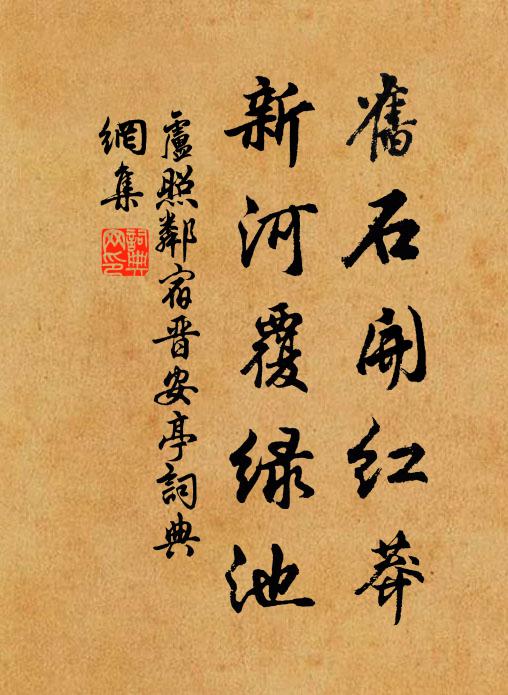 舊石開紅莽
新河覆綠池
盧照鄰宿晋安亭詞典
網集
詞典
网印